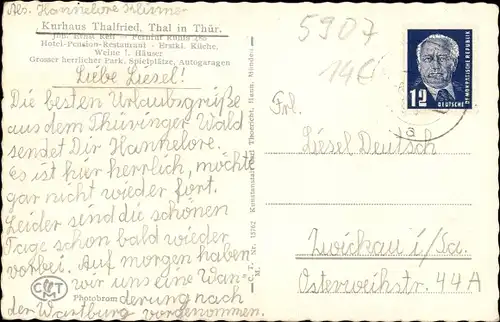 Abs. Hannelore
Kurhaus Thalfried, Thal in Thür.
Hotel-Pension-Restaurant - Erstkl. Küche,
Weine l. Häuser
Grosser herrlicher Park, Spielplätze, Autogaragen
Liebe Liesel!
Die besten Urlaubsgrüße
aus dem Thüringer Wald
sendet Dir Hannelore.
Es ist hier herrlich, möchte
gar nicht wieder fort.
Leider sind die schönen
Tage schon bald wieder
vorbei. Auf morgen haben
wir uns eine Wan-
derung nach
der Wartburg vorgenommen.
CTM
Photobrom
C. T. M. Nr. 15762
5907
14€
12
DEUTSCHE
DEMOKRATISCHE REPUBLIK
Frl.
Liesel Deutsch
Zwickau i/Sa.
Osterweihstr. 44A